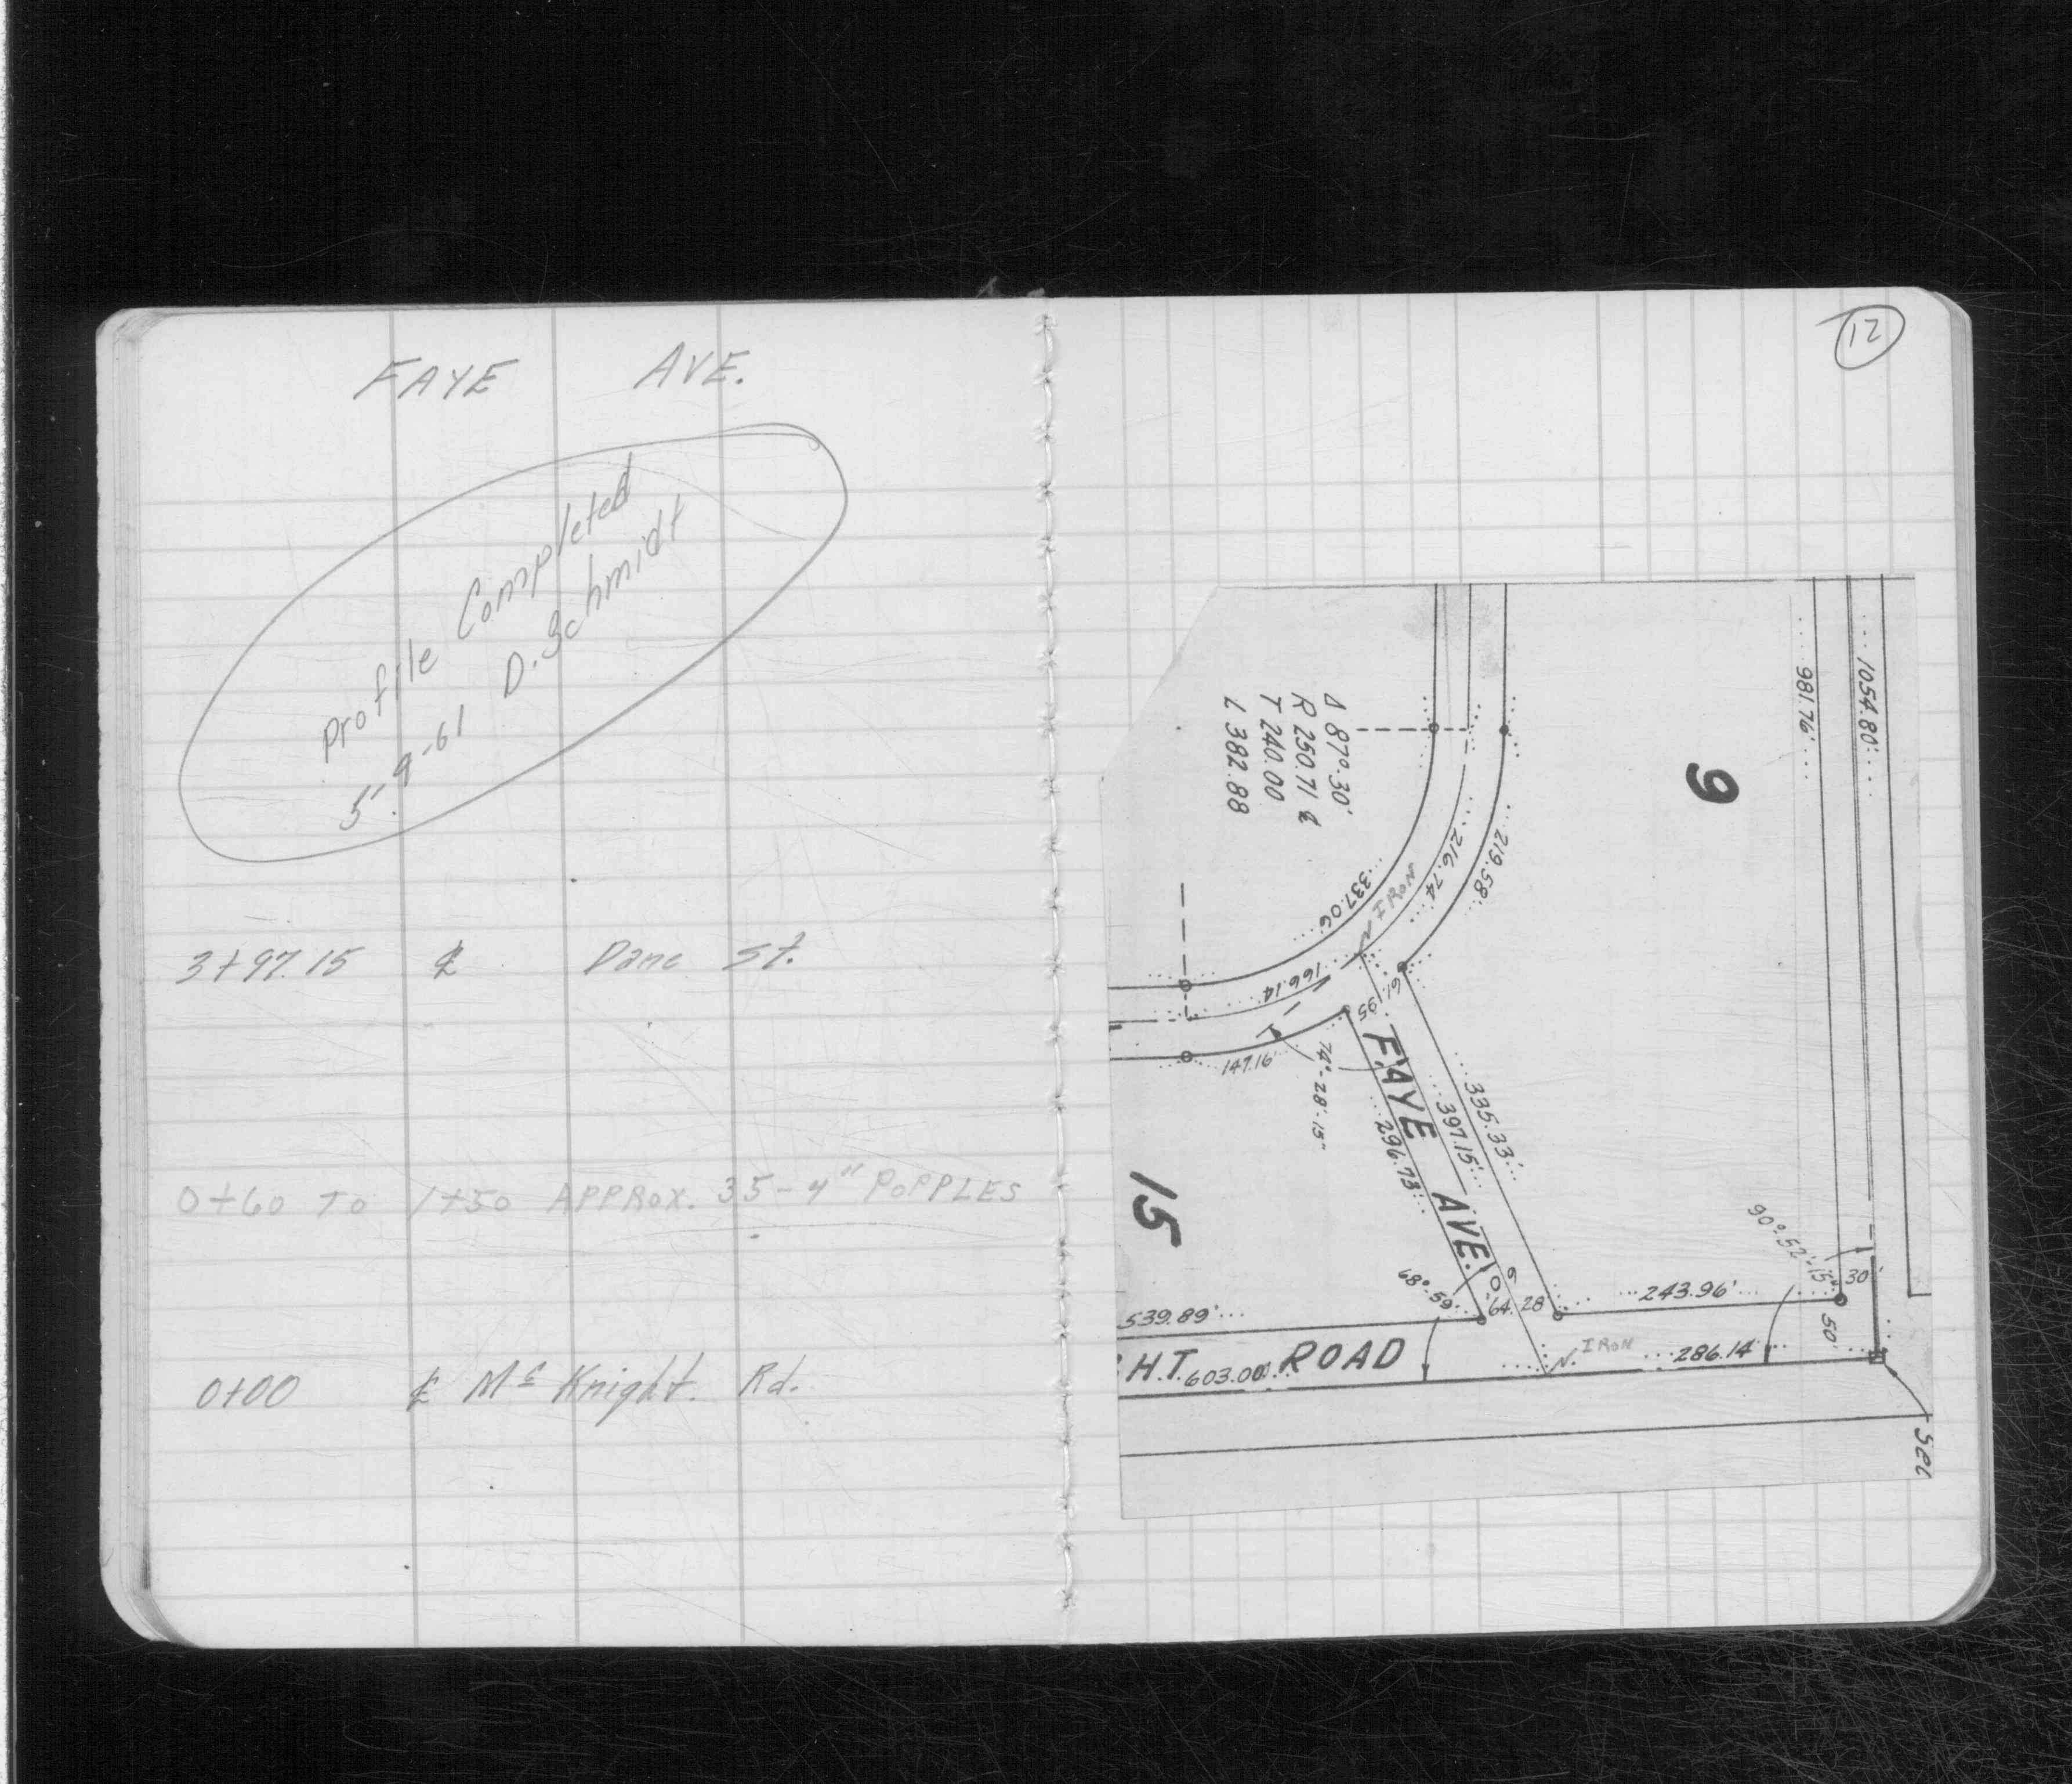 FAYE AVE.
Profile Completed
5-9-61 D. Schmidt
3+97.15 ℄ Dane St.
0+60 TO 1+50 APPROX. 35-4" POPPLES
0+00 ℄ Mc Knight. Rd.
12
981.76'
1054.80'
Δ 87°-30'
R 250.71 ℄
T 240.00
L 382.88
9
219.58'
216.74'
337.06
IRON
166.14
61.95
147.16'
74°-28'-15"
FAYE AVE.
335.33'
397.15'
296.73'
15
90°-52'-15"
30'
68°-59'
60
64.28
243.96'
50'
539.89'
HT ROAD
603.00'
IRON
286.14'
Sec